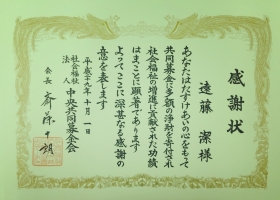 感謝状
遠藤 潔 様
あなたはたすけあいの心をもって
共同募金に多額の浄財を寄付され
社会福祉の増進に貢献された功績
はまことに顕著であります
よってここに深甚なる感謝の
意を表します
平成二十九年十月一日
社会福祉法人 中央共同募金会
会長 斎藤十朗